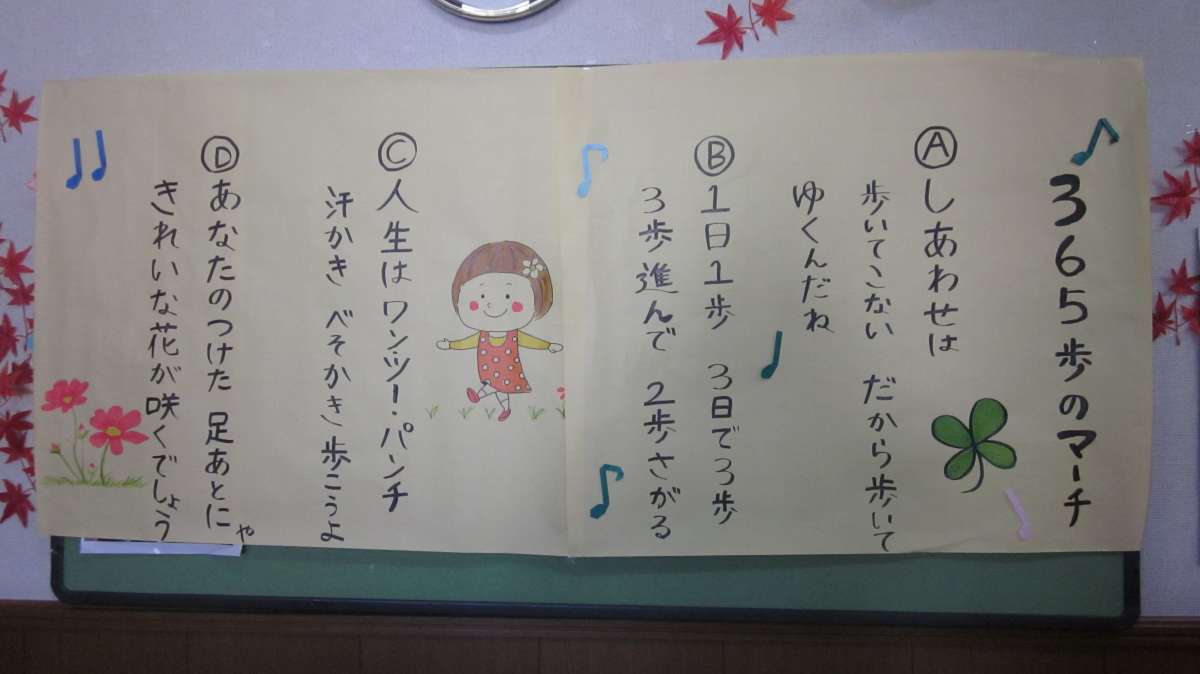 365歩のマーチ
Ⓐしあわせは
歩いてこない だから歩いて
ゆくんだね
Ⓑ1日1歩 3日で3歩
3歩進んで 2歩さがる
Ⓒ人生は ワン・ツー・パンチ
汗かき べそかき 歩こうよ
Ⓓあなたのつけた 足あとにゃ
きれいな花が咲くでしょう